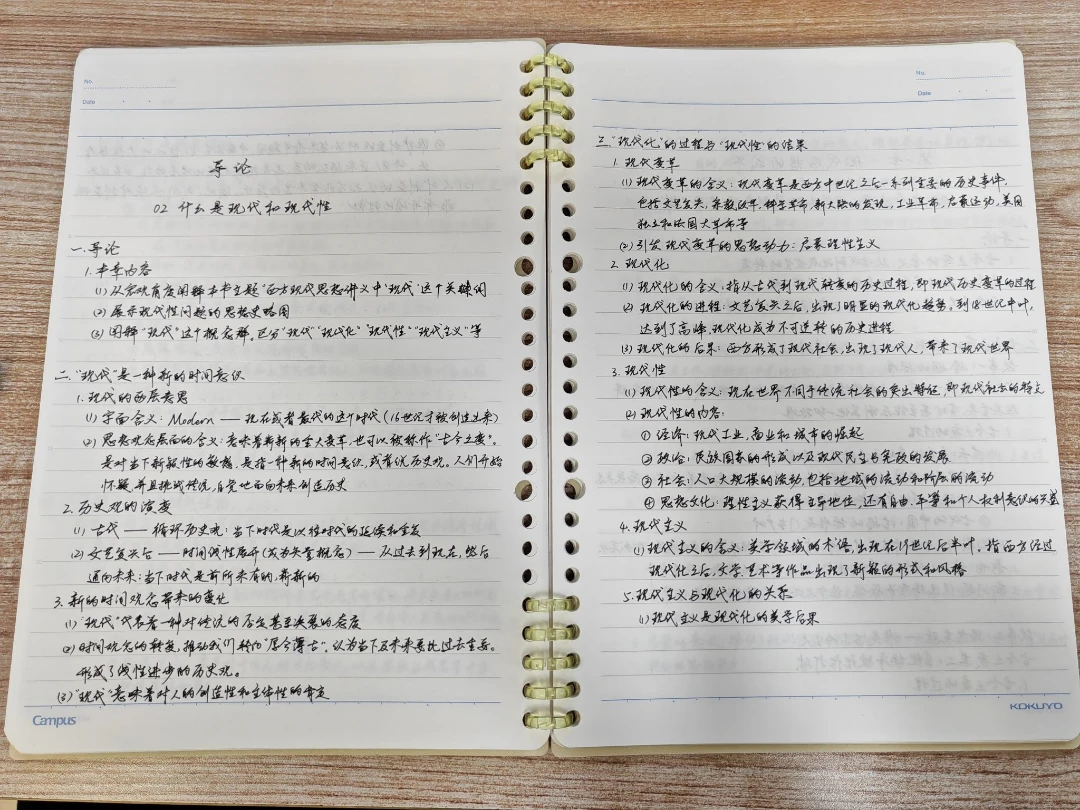 No.
Date
导论
02 什么是现代和现代性
一.导论
1. 本章内容
(1) 从宏观角度阐释本书主题“西方现代思想讲义中‘现代’这个关键词
(2) 展示现代性问题的思想史略图
(3) 阐释“现代”这个概念群。区分“现代”“现代化”“现代性”“现代主义”等
二.“现代”是一种新的时间意识
1. 现代的两层意思
(1) 字面含义：Modern —— 现在或者最代的这个时代（16世纪才被创造过来）
(2) 思想观念层面的含义：意味着新新的重大变革，也可以被称作“古今之变”。
是对当下新锐性的敏感，是指一种新的时间意识，或者说历史观。人们开始
怀疑并且挑战传统，自觉地面向未来创造历史
2. 历史观的演变
(1) 古代 —— 循环历史观：当下时代是以往时代的延续和重复
(2) 文艺复兴后 —— 时间线性展开（成为矢量概念）—— 从过去到现在，然后
通向未来：当下时代是前所未有的，崭新的
3. 新的时间观念带来的变化
(1) “现代”代表着一种对传统的否定甚至决裂的态度
(2) 时间观念的转变，推动我们转向“厚今薄古”，认为当下及未来要比过去重要。
形成了线性进步的历史观。
(3) “现代”意味着对人的创造性和主体性的肯定
Campus
No.
Date
三.“现代化”的过程与“现代性”的结果
1. 现代变革
(1) 现代变革的含义：现代变革是西方中世纪之后一系列重要的历史事件，
包括文艺复兴，宗教改革，科学革命，新大陆的发现，工业革命，启蒙运动，美国
独立和法国大革命等
(2) 引发现代变革的思想动力：启蒙理性主义
2. 现代化
(1) 现代化的含义：指从古代到现代转变的历史过程，即现代历史变革的过程
(2) 现代化的进程：文艺复兴之后，出现了明显的现代化趋势。到18世纪中叶，
达到了高峰。现代化成为不可逆转的历史进程
(3) 现代化的后果：西方形成了现代社会，出现了现代人，带来了现代世界
3. 现代性
(1) 现代性的含义：现在世界不同于传统社会的突出特征，即现代社会的特点
(2) 现代性的内容：
① 经济：现代工业，商业和城市的崛起
② 政治：民族国家的形成以及现代民主与宪政的发展
③ 社会：人口大规模的流动，包括地域的流动和阶层的流动
④ 思想文化：理性主义获得主导地位，还有自由、平等和个人权利意识的兴盛
4. 现代主义
(1) 现代主义的含义：美学领域的术语，出现在19世纪后半叶，指西方经过
现代化之后，文学，艺术等作品出现了新锐的形式和风格
5. 现代主义与现代化的关系
(1) 现代主义是现代化的美学后果
KOKUYO